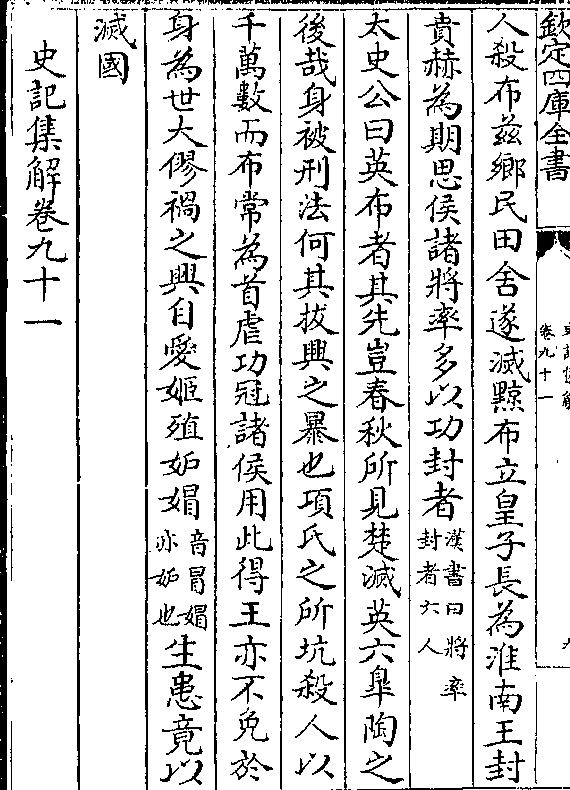 欽定四庫全書
史記集解
卷九十一
九
人殺布茲鄉民田舍遂滅黥布立皇子長為淮南王封
賁赫為期思侯諸將率多以功封者
漢書曰將率
封者六人
太史公曰英布者其先豈春秋所見楚滅英六皐陶之
後哉身被刑法何其拔興之暴也項氏之所坑殺人以
千萬數而布常為首虐功冠諸侯用此得王亦不免於
身為世大僇禍之興自愛姬殖妒媢
音冒媢
亦妒也
生患竟以
滅國
史記集解卷九十一